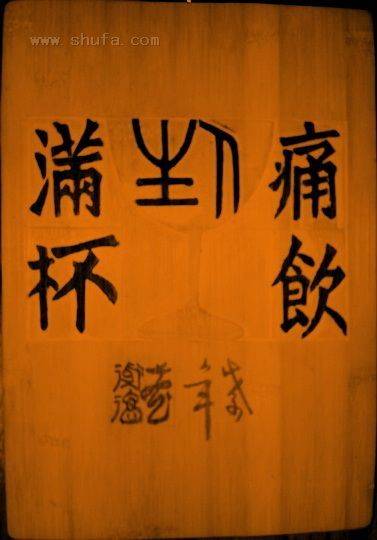 www.shufa.com
痛飲
人生
滿杯